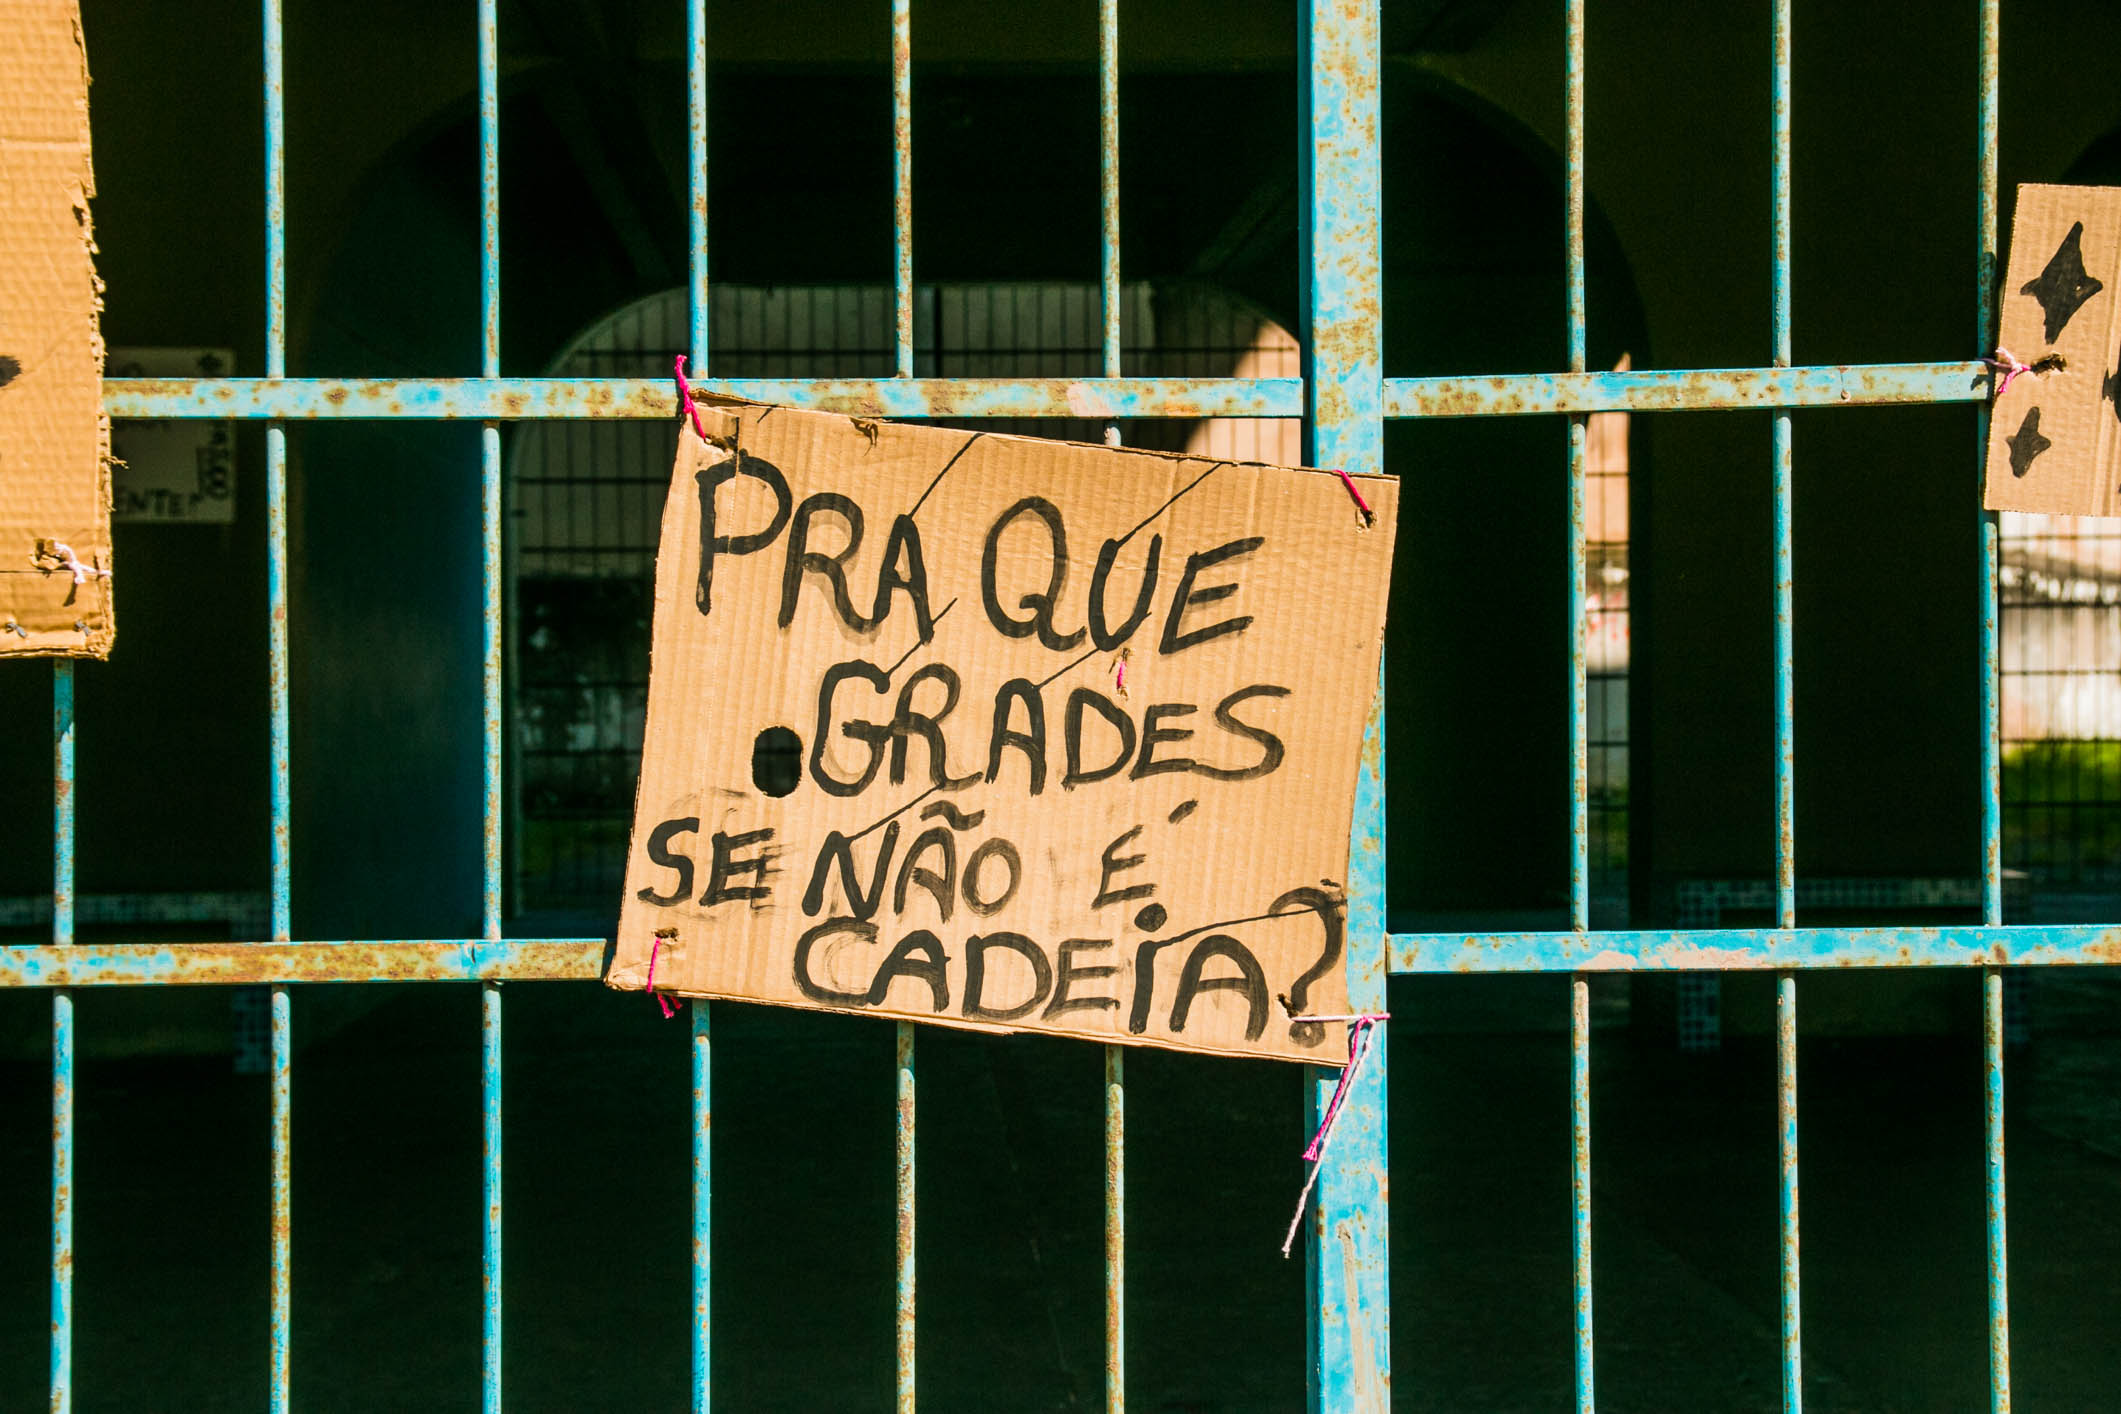 PRA QUE
GRADES
SE NÃO É
CADEiA?
ENTE?